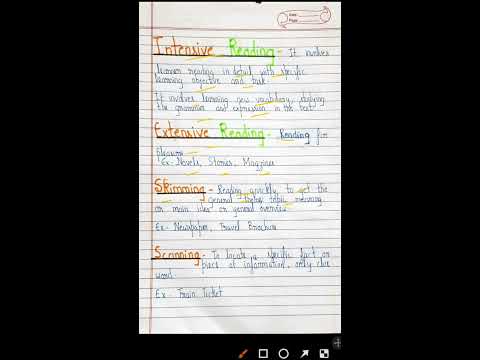 Date
Page
Intensive Reading - It involves
learners reading in detail with specific
learning objective and task.
It involves learning new vocabulary, studying
the grammar and expression in the text
Extensive Reading - Reading for
pleasure
Ex- Novels, Stories, Magzines
Skimming - Reading quickly, to get the
general topic, meaning
or main idea or general overview
Ex- Newspaper, Travel Brochure
Scanning - To locate a specific fact or
piece of information, only clue
word.
Ex- Train Ticket